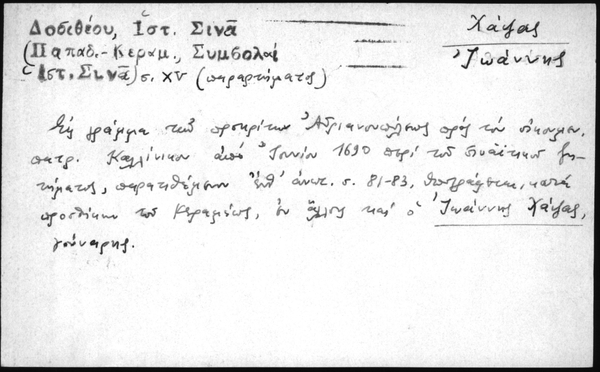 Δοσιθέου, Ἱστ. Σινᾶ
(Παπαδ.-Κεραμ., Συμβολαί
Ἱστ. Σινᾶ) σ. XV (παραρτήματος)
Χάψας
Ἰωάννης
Εἰς γράμμα τῶν προκρίτων Ἀδριανουπόλεως πρὸς τὸν οἰκουμ.
πατρ. Καλλίνικον ἀπὸ Ἰουνίου 1690 περὶ τοῦ σιναϊτικοῦ ζη-
τήματος, παρατιθέμενον ἐνθ' ἀνωτ. σ. 81-83, ὑπογράφεται, κατὰ
προσθήκην τοῦ Κεραμέως, ἐν ἄλλοις καὶ ὁ Ἰωάννης Χάψας,
γούναρης.